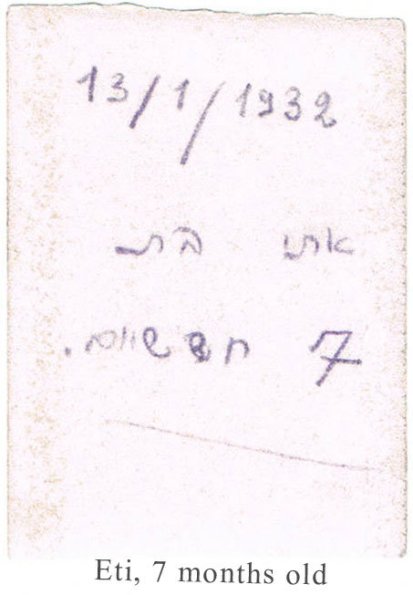 13/1/1932
אתי בת
7 חדשים.
Eti, 7 months old